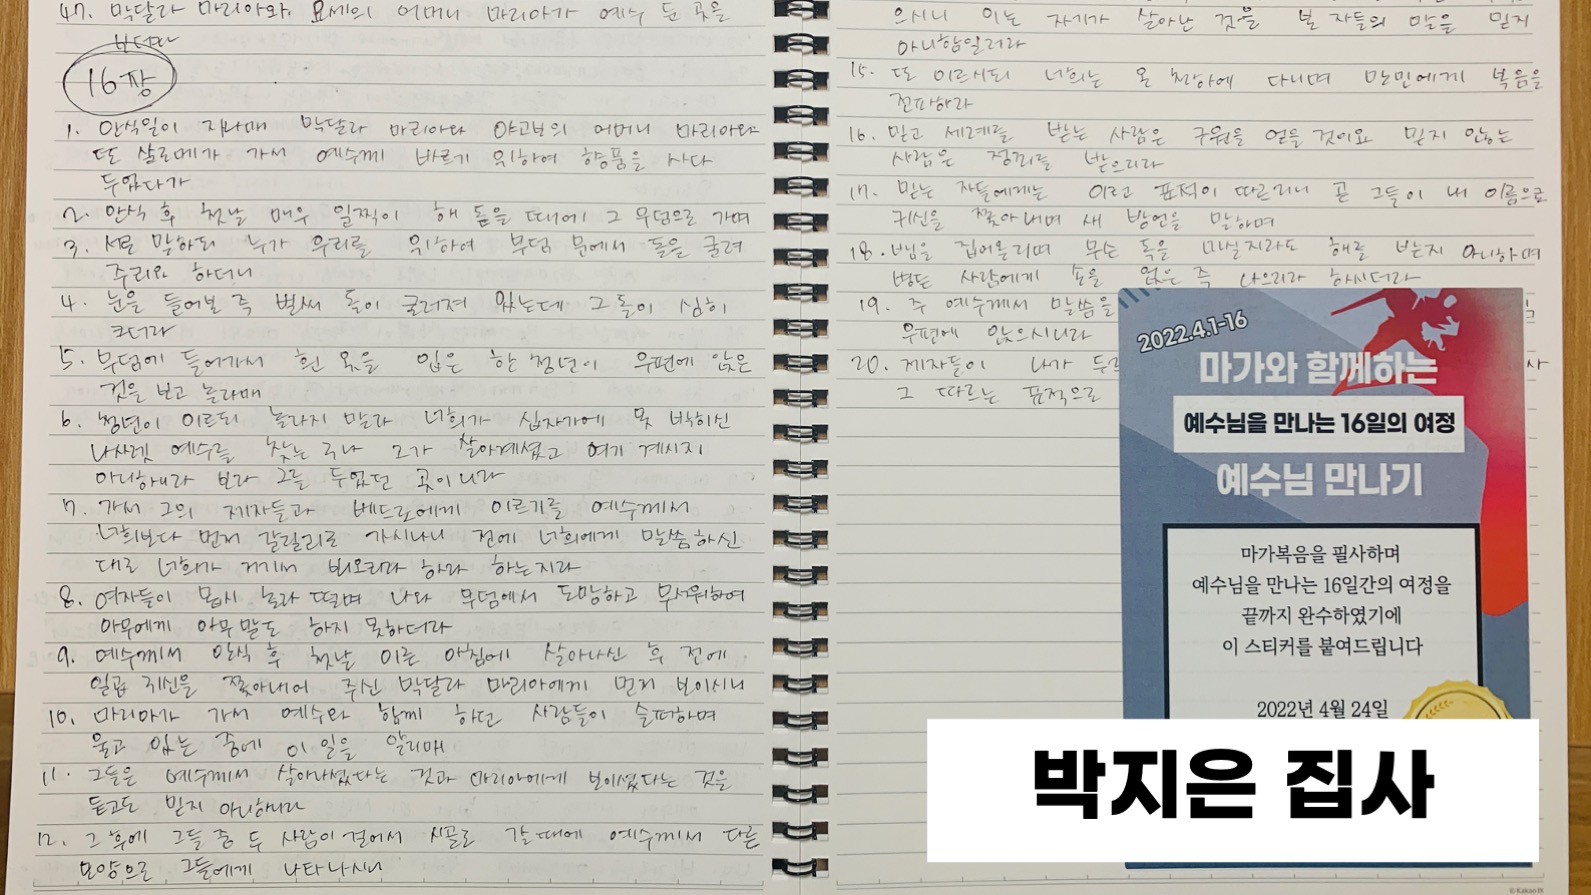 47. 막달라 마리아와 요세의 어머니 마리아가 예수 둔 곳을
보더라
16장
1. 안식일이 지나매 막달라 마리아와 야고보의 어머니 마리아와
또 살로메가 가서 예수께 바르기 위하여 향품을 사다
두었다가
2. 안식 후 첫날 매우 일찍이 해 돋을 때에 그 무덤으로 가며
3. 서로 말하되 누가 우리를 위하여 무덤 문에서 돌을 굴려
주리요 하더니
4. 눈을 들어본 즉 벌써 돌이 굴려져 있는데 그 돌이 심히
크더라
5. 무덤에 들어가서 흰 옷을 입은 한 청년이 우편에 앉은
것을 보고 놀라매
6. 청년이 이르되 놀라지 말라 너희가 십자가에 못 박히신
나사렛 예수를 찾는구나 그가 살아나셨고 여기 계시지
아니하니라 보라 그를 두었던 곳이니라
7. 가서 그의 제자들과 베드로에게 이르기를 예수께서
너희보다 먼저 갈릴리로 가시나니 전에 너희에게 말씀하신
대로 너희가 거기서 뵈오리라 하라 하는지라
8. 여자들이 몹시 놀라 떨며 나와 무덤에서 도망하고 무서워하여
아무에게 아무 말도 하지 못하더라
9. 예수께서 안식 후 첫날 이른 아침에 살아나신 후 전에
일곱 귀신을 쫓아내어 주신 막달라 마리아에게 먼저 보이시니
10. 마리아가 가서 예수와 함께 하던 사람들이 슬퍼하며
울고 있는 중에 이 일을 알리매
11. 그들은 예수께서 살아나셨다는 것과 마리아에게 보이셨다는 것을
듣고도 믿지 아니하니라
12. 그 후에 그들 중 두 사람이 걸어서 시골로 갈 때에 예수께서 다른
모양으로 그들에게 나타나시니
으시니 이는 자기가 살아난 것을 본 자들의 말을 믿지
아니함일러라
15. 또 이르시되 너희는 온 천하에 다니며 만민에게 복음을
전파하라
16. 믿고 세례를 받는 사람은 구원을 얻을 것이요 믿지 않는
사람은 정죄를 받으리라
17. 믿는 자들에게는 이런 표적이 따르리니 곧 그들이 내 이름으로
귀신을 쫓아내며 새 방언을 말하며
18. 뱀을 집어올리며 무슨 독을 마실지라도 해를 받지 아니하며
병든 사람에게 손을 얹은 즉 나으리라 하시더라
19. 주 예수께서 말씀을
우편에 앉으시니라
20. 제자들이 나가 두루 사
그 따르는 표적으로
2022.4.1-16
마가와 함께하는
예수님을 만나는 16일의 여정
예수님 만나기
마가복음을 필사하며
예수님을 만나는 16일간의 여정을
끝까지 완수하였기에
이 스티커를 붙여드립니다
2022년 4월 24일
박지은 집사
© Kakao IX